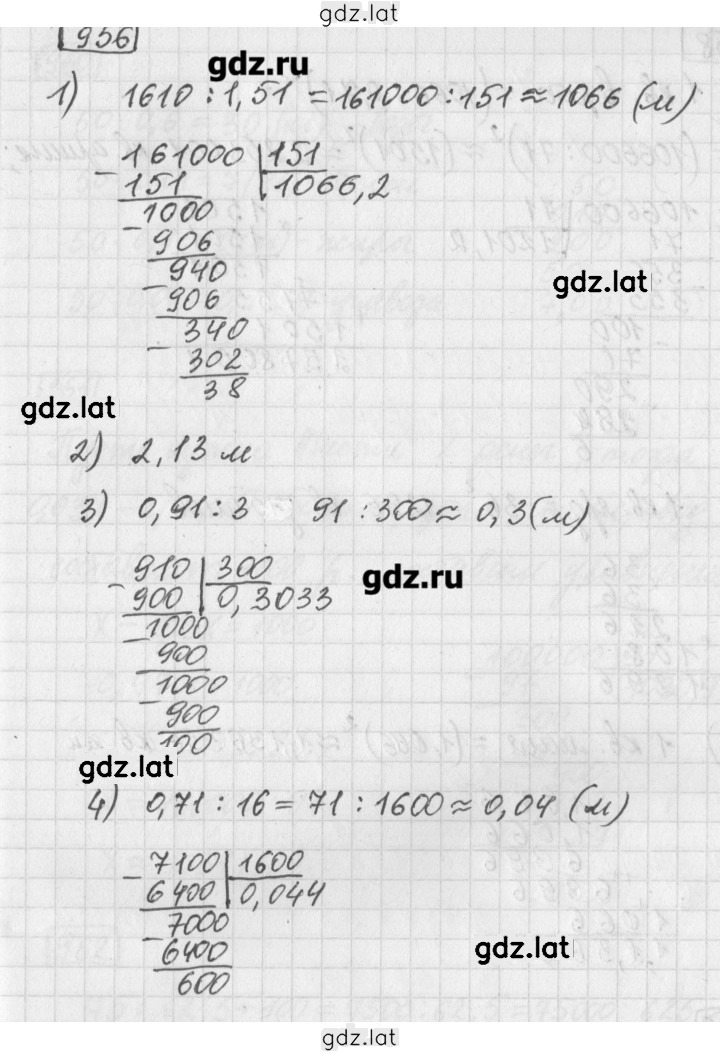 gdz.lat
936
gdz.ru
1) 1610 : 1,51 = 161000 : 151 ≈ 1066 (м)
- 161000 | 151
151 | 1066,2
- 1000
906
- 940
906
- 340
302
38
gdz.lat
gdz.lat
2) 2,13 м
3) 0,91 : 3 91 : 300 ≈ 0,3 (м)
- 910 | 300
900 | 0,3033
gdz.ru
- 1000
900
- 1000
900
100
gdz.lat
4) 0,71 : 16 = 71 : 1600 ≈ 0,04 (м)
- 7100 | 1600
6400 | 0,044
- 7000
6400
600
gdz.lat
gdz.lat